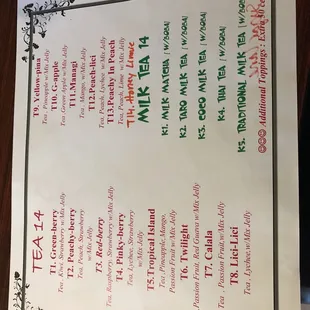 TEA 14
T1. Green-berry
Tea, Kiwi, Strawberry w/Mix Jelly
T2. Peachy-berry
Tea, Peach, Strawberry
w/Mix Jelly
T3. Red-berry
Tea, Raspberry, Strawberry w/Mix Jelly
T4. Pinky-berry
Tea, Lychee, Strawberry
w/Mix Jelly
T5.Tropical Island
Tea, Pineapple,Mango,
Passion Fruit w/Mix Jelly
T6. Twilight
Passion Fruit, Red Guava w/Mix Jelly
T7. Calala
Tea, Passion Fruit,w/Mix Jelly
T8. Lici-Lici
Tea, Lychee,w/Mix Jelly
T9.Yellow-pina
Tea, Pineapple w/Mix Jelly
T10. G-apple
Tea Green Apple w/Mix Jelly
T11.Managi
Tea, Mango, w/Mix Jelly
T12.Peach-lici
Tea, Peach, Lychee, w/Mix Jelly
T13.Peachy in Peach
Tea, Peach, Lime w/Mix Jelly
T14. Honey Lime
MILK TEA 14
K1. MILK MATCHA (W/BOBA)
K2. TARO MILK TEA (W/BOBA)
K3. COCO MILK TEA (W/BOBA)
K4. THAI TEA (W/BOBA)
K5. TRADITIONAL MILK TEA (W/BOBA)
Additional Toppings : Extra